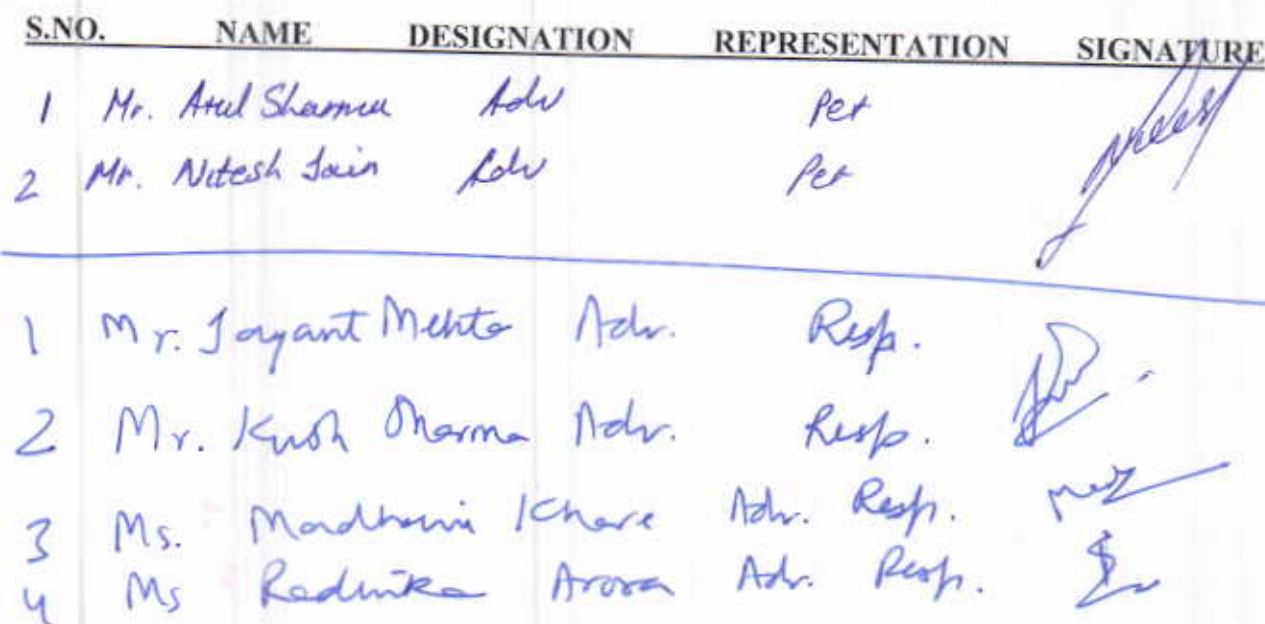 S.NO. NAME DESIGNATION REPRESENTATION SIGNATURE
1 Mr. Atul Sharma Adv Pet
2 Mr. Nitesh Jain Adv Pet
1 Mr. Jayant Mehta Adv. Resp.
2 Mr. Kush Sharma Adv. Resp.
3 Ms. Madhavi Khare Adv. Resp.
4 Ms Radhika Arora Adv. Resp.